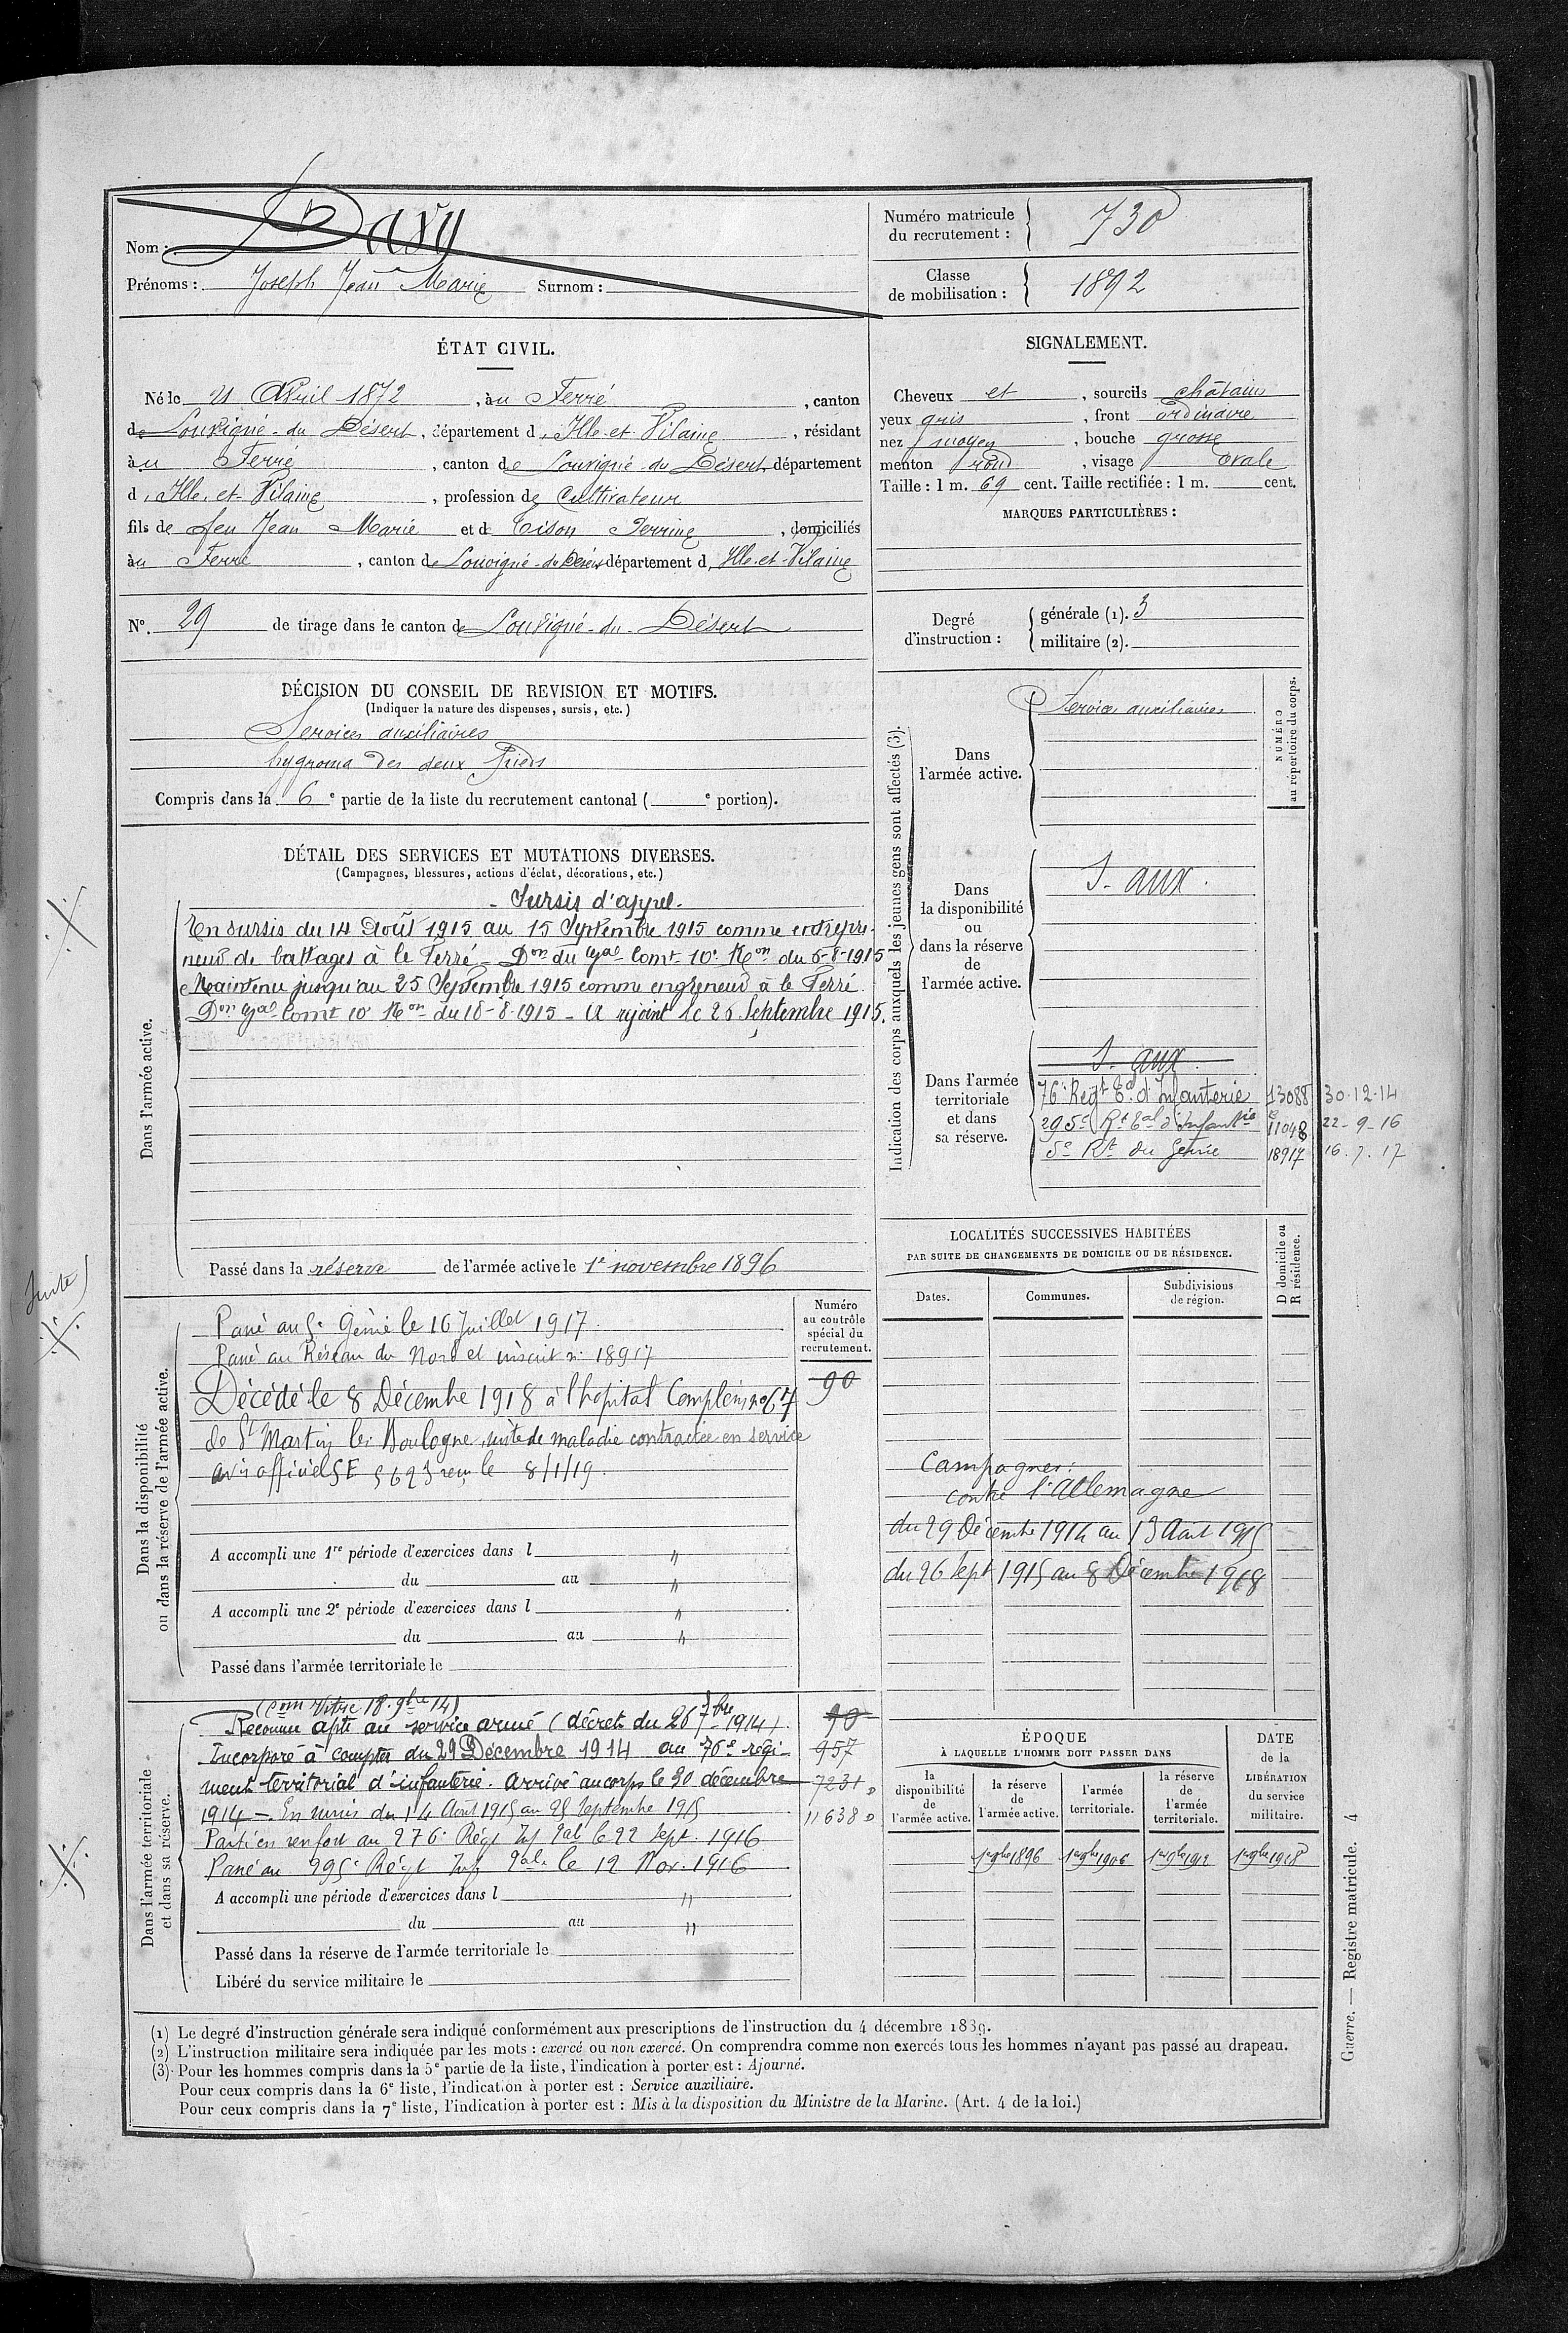 Nom : Davy
Prénoms : Joseph Jean Marie Surnom :
Numéro matricule du recrutement : 730
Classe de mobilisation : 1892
ÉTAT CIVIL.
Né le 21 Avril 1872, à u Ferré, canton
de Louvigné-du-Désert, département d'Ille-et-Vilaine, résidant
à u Ferré, canton de Louvigné-du-Désert, département
d'Ille-et-Vilaine, profession de Cultivateur
fils de feu Jean Marie et d Tison Perrine, domiciliés
à u Ferré, canton de Louvigné-du-Désert département d'Ille-et-Vilaine
N°. 29 de tirage dans le canton de Louvigné-du-Désert
SIGNALEMENT.
Cheveux et, sourcils châtains
yeux gris, front ordinaire
nez moyen, bouche grosse
menton rond, visage ovale
Taille : 1 m. 69 cent. Taille rectifiée : 1 m. cent.
MARQUES PARTICULIÈRES :
Degré d'instruction :
générale (1). 3
militaire (2).
DÉCISION DU CONSEIL DE REVISION ET MOTIFS.
(Indiquer la nature des dispenses, sursis, etc.)
Services auxiliaires
hygroma des deux pieds
Compris dans la 6e partie de la liste du recrutement cantonal ( e portion).
DÉTAIL DES SERVICES ET MUTATIONS DIVERSES.
(Campagnes, blessures, actions d'éclat, décorations, etc.)
Dans l'armée active.
- Sursis d'appel -
En sursis du 14 Août 1915 au 15 Septembre 1915 comme entrepre-
neur de battages à le Ferré - Don du Gal Comt 10e Ron du 6-8-1915
Maintenu jusqu'au 25 Septembre 1915 comme engreneur à le Ferré.
Don Gal Comt 10e Ron du 18-8-1915 - A rejoint le 26 Septembre 1915.
Passé dans la réserve de l'armée active le 1e novembre 1896
Indication des corps auxquels les jeunes gens sont affectés (3).
NUMÉRO au répertoire du corps.
Dans l'armée active.
Services auxiliaires
Dans la disponibilité ou dans la réserve de l'armée active.
S. aux.
Dans l'armée territoriale et dans sa réserve.
S. aux.
76e Regt Td d'Infanterie 13088 30-12-14
295e Rt Tal d'Infantie 11048 22-9-16
5e Rt du Génie 18917 16.7.17
(suite)
Dans la disponibilité ou dans la réserve de l'armée active.
Numéro au contrôle spécial du recrutement.
90
Passé au 5e Génie le 16 Juillet 1917.
Passé au Réseau du Nord et inscrit n° 18917
Décédé le 8 Décembre 1918 à l'hopital Complém n° 67
de St Martin les Boulogne, suite de maladie contractée en service
avis officiel SE 5693 reçu le 8/1/19.
A accompli une 1re période d'exercices dans l "
du au "
A accompli une 2e période d'exercices dans l "
du au "
Passé dans l'armée territoriale le
LOCALITÉS SUCCESSIVES HABITÉES
PAR SUITE DE CHANGEMENTS DE DOMICILE OU DE RÉSIDENCE.
Dates. Communes. Subdivisions de région. D domicile ou R résidence.
Campagnes :
contre l'Allemagne
du 29 Décembre 1914 au 13 Août 1915
du 26 Sept 1915 au 8 Décembre 1918
Dans l'armée territoriale et dans sa réserve.
(Com Vitré 18.9bre 14)
Reconnu apte au service armé (décret du 26 7bre 1914). 90
Incorporé à compter du 29 Décembre 1914 au 76e régi- 957
ment territorial d'infanterie. Arrivé au corps le 30 décembre 7231 D
1914 - En sursis du 14 Août 1915 au 25 Septembre 1915 11638 D
Parti en renfort au 276e Régt Inf Tal le 22 Sept. 1916
Passé au 295e Régt Inf Tal. le 12 Nov. 1916
A accompli une période d'exercices dans l "
du au "
Passé dans la réserve de l'armée territoriale le
Libéré du service militaire le
ÉPOQUE
À LAQUELLE L'HOMME DOIT PASSER DANS
la disponibilité de l'armée active.
la réserve de l'armée active.
l'armée territoriale.
la réserve de l'armée territoriale.
DATE de la LIBÉRATION du service militaire.
1er 9bre 1896 1er 9bre 1906 1er 9bre 1912 1er 9bre 1918
(1) Le degré d'instruction générale sera indiqué conformément aux prescriptions de l'instruction du 4 décembre 1889.
(2) L'instruction militaire sera indiquée par les mots : exercé ou non exercé. On comprendra comme non exercés tous les hommes n'ayant pas passé au drapeau.
(3) Pour les hommes compris dans la 5e partie de la liste, l'indication à porter est : Ajourné.
Pour ceux compris dans la 6e liste, l'indication à porter est : Service auxiliaire.
Pour ceux compris dans la 7e liste, l'indication à porter est : Mis à la disposition du Ministre de la Marine. (Art. 4 de la loi.)
Guerre. — Registre matricule. 4